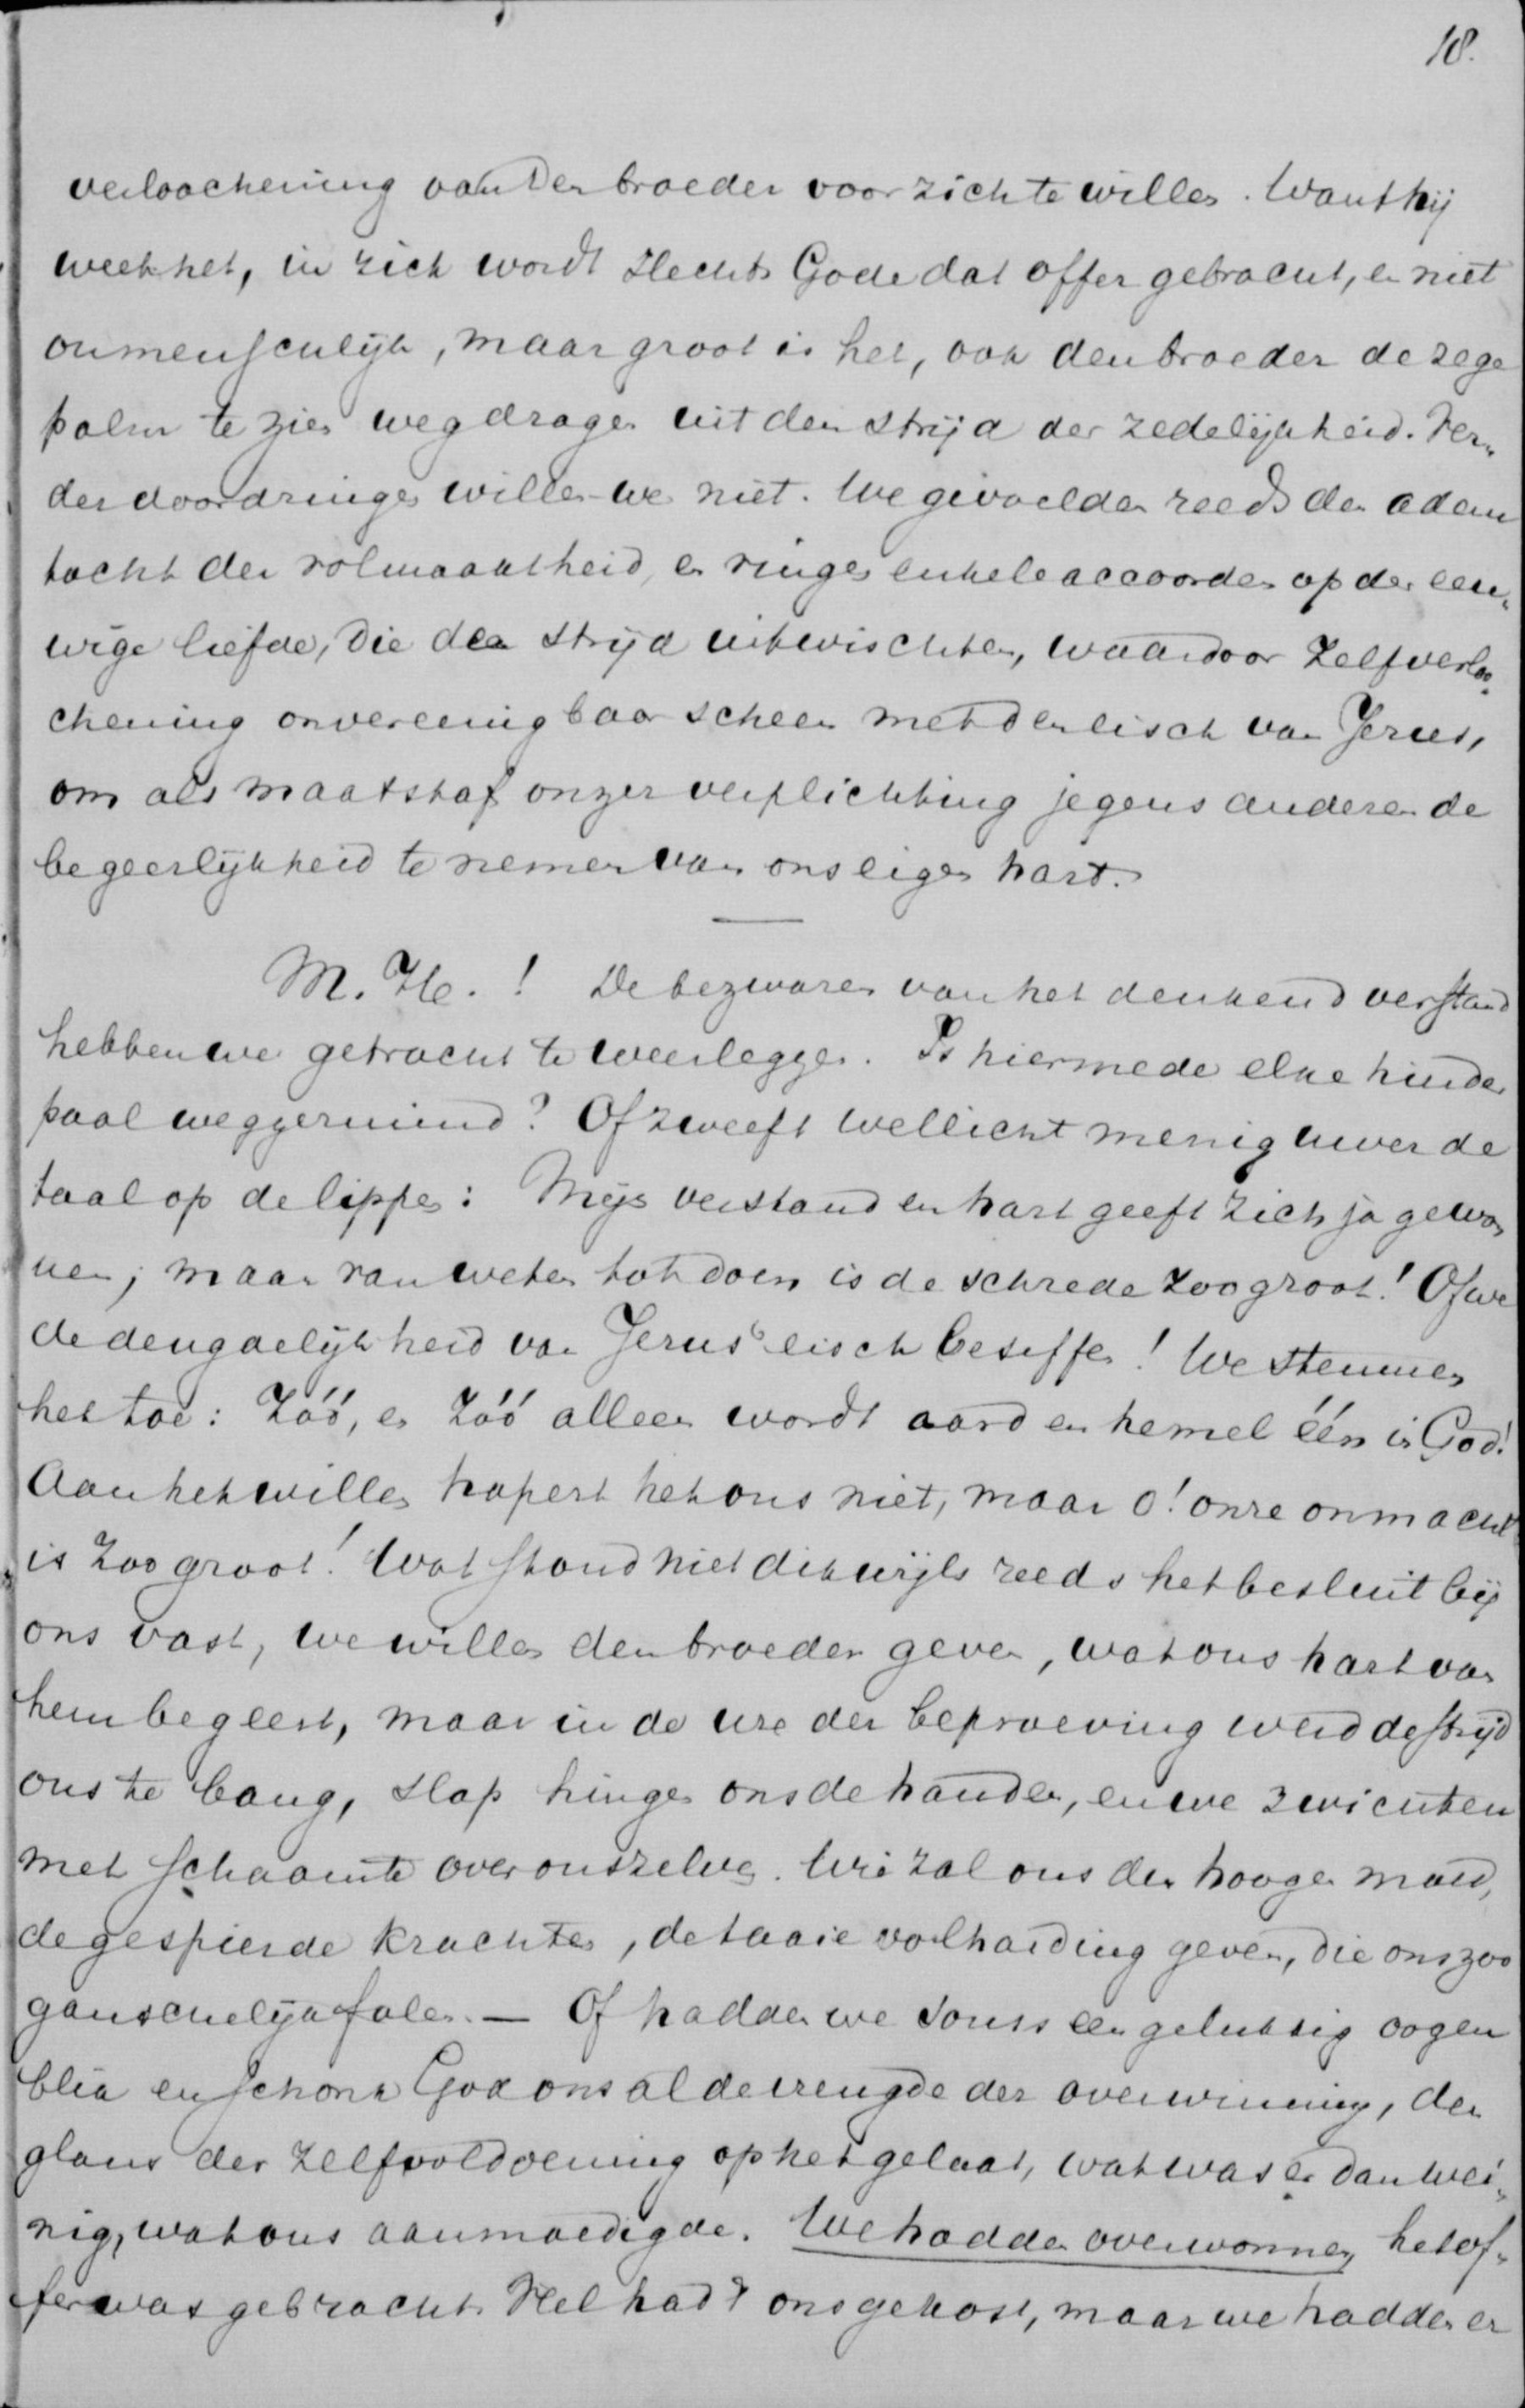 18.
verloochening van den broeder voor zich te willen. Want hij
weet het, in zich wordt slechts Gode dat offer gebracht, en niet
onmenschlijk, maar groot is het, ook den broeder de zege
palm te zien wegdragen uit den strijd der zedelijkheid. Ver„
der doordringen willen we niet. We gevoelden reeds den adem
tocht der volmaaktheid, en vingen enkele accoorden op der eeu„
wige liefde, die den strijd uitwischten, waardoor zelfverloo„
chening onvereenigbaar scheen met den eisch van Jezus,
om als maatstaf onzer verplichting jegens anderen de
begeerlijkheid te nemen van ons eigen hart.
M. H. ! De bezwaren van het denkend verstand
hebben we getracht te weerleggen. Is hiermede elke hinder
paal weggeruimd? Of zweeft wellicht menig uwer de
taal op de lippen: Mijn verstand en hart geeft zich ja gewon
nen; maar van weten tot doen is de schrede zoo groot! Of we
de deugdelijkheid van Jezus' eisch beseffen! We stemmen
het toe: Zóó, en zóó alleen wordt aard en hemel één in God!
Aan het willen hapert het ons niet, maar o! onze onmacht
is zoo groot! Wat stond niet dikwijls reeds het besluit bij
ons vast, we willen den broeder geven, wat ons hart van
hem begeert, maar in de ure der beproeving werd de strijd
ons te bang, slap hingen ons de handen, en we zwichten
met schaamte over onszelven. Wie zal ons den hoogen moed,
de gespierde krachten, de taaie volharding geven, die ons zoo
ganschelijk falen. — Of hadden we soms een gelukkig oogen
blik en schonk God ons al de vreugde der overwinning, den
glans der zelfvoldoening op het gelaat, wat was er dan wei„
nig, wat ons aanmoedigde. We hadden overwonnen, het of„
fer was gebracht. Het had 't ons gekost, maar we hadden er